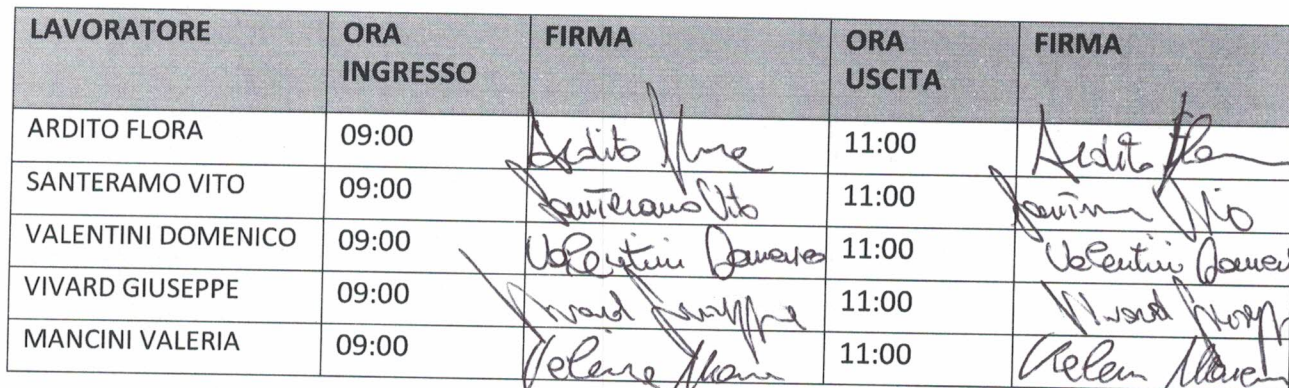 LAVORATORE ORA INGRESSO FIRMA ORA USCITA FIRMA
ARDITO FLORA 09:00 Ardito 11:00 Ardito Flo
SANTERAMO VITO 09:00 Santeramo Vito 11:00 Vito
VALENTINI DOMENICO 09:00 Valentini Domenico 11:00 Valentini Domeni
VIVARD GIUSEPPE 09:00 Vivard Giuseppe 11:00 Vivard
MANCINI VALERIA 09:00 11:00